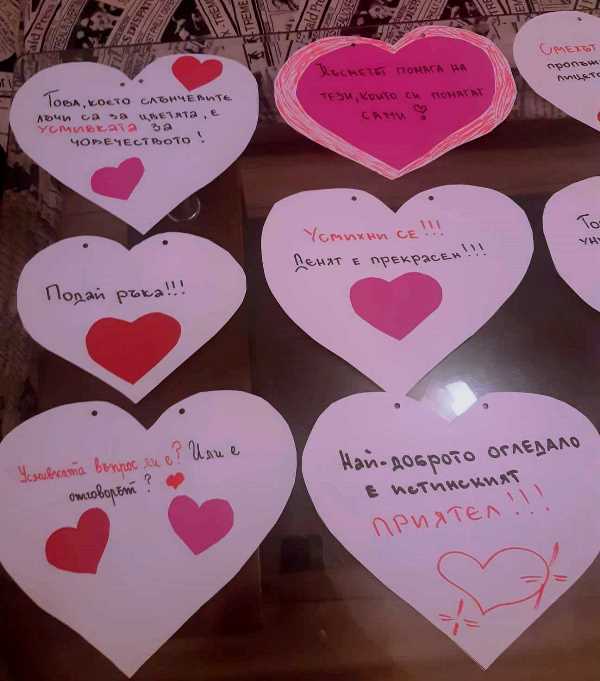 Това, което слънчевите
лъчи са за цветята, е
усмивката за
човечеството!
Късметът помага на
тези, които си помагат
сами!
Смехът
лицето
Подай ръка!!!
Усмихни се!!!
Денят е прекрасен!!!
То
ун
Усмивката въпрос ли е? Или е
отговорът?
Най-доброто огледало
е истинският
приятел!!!